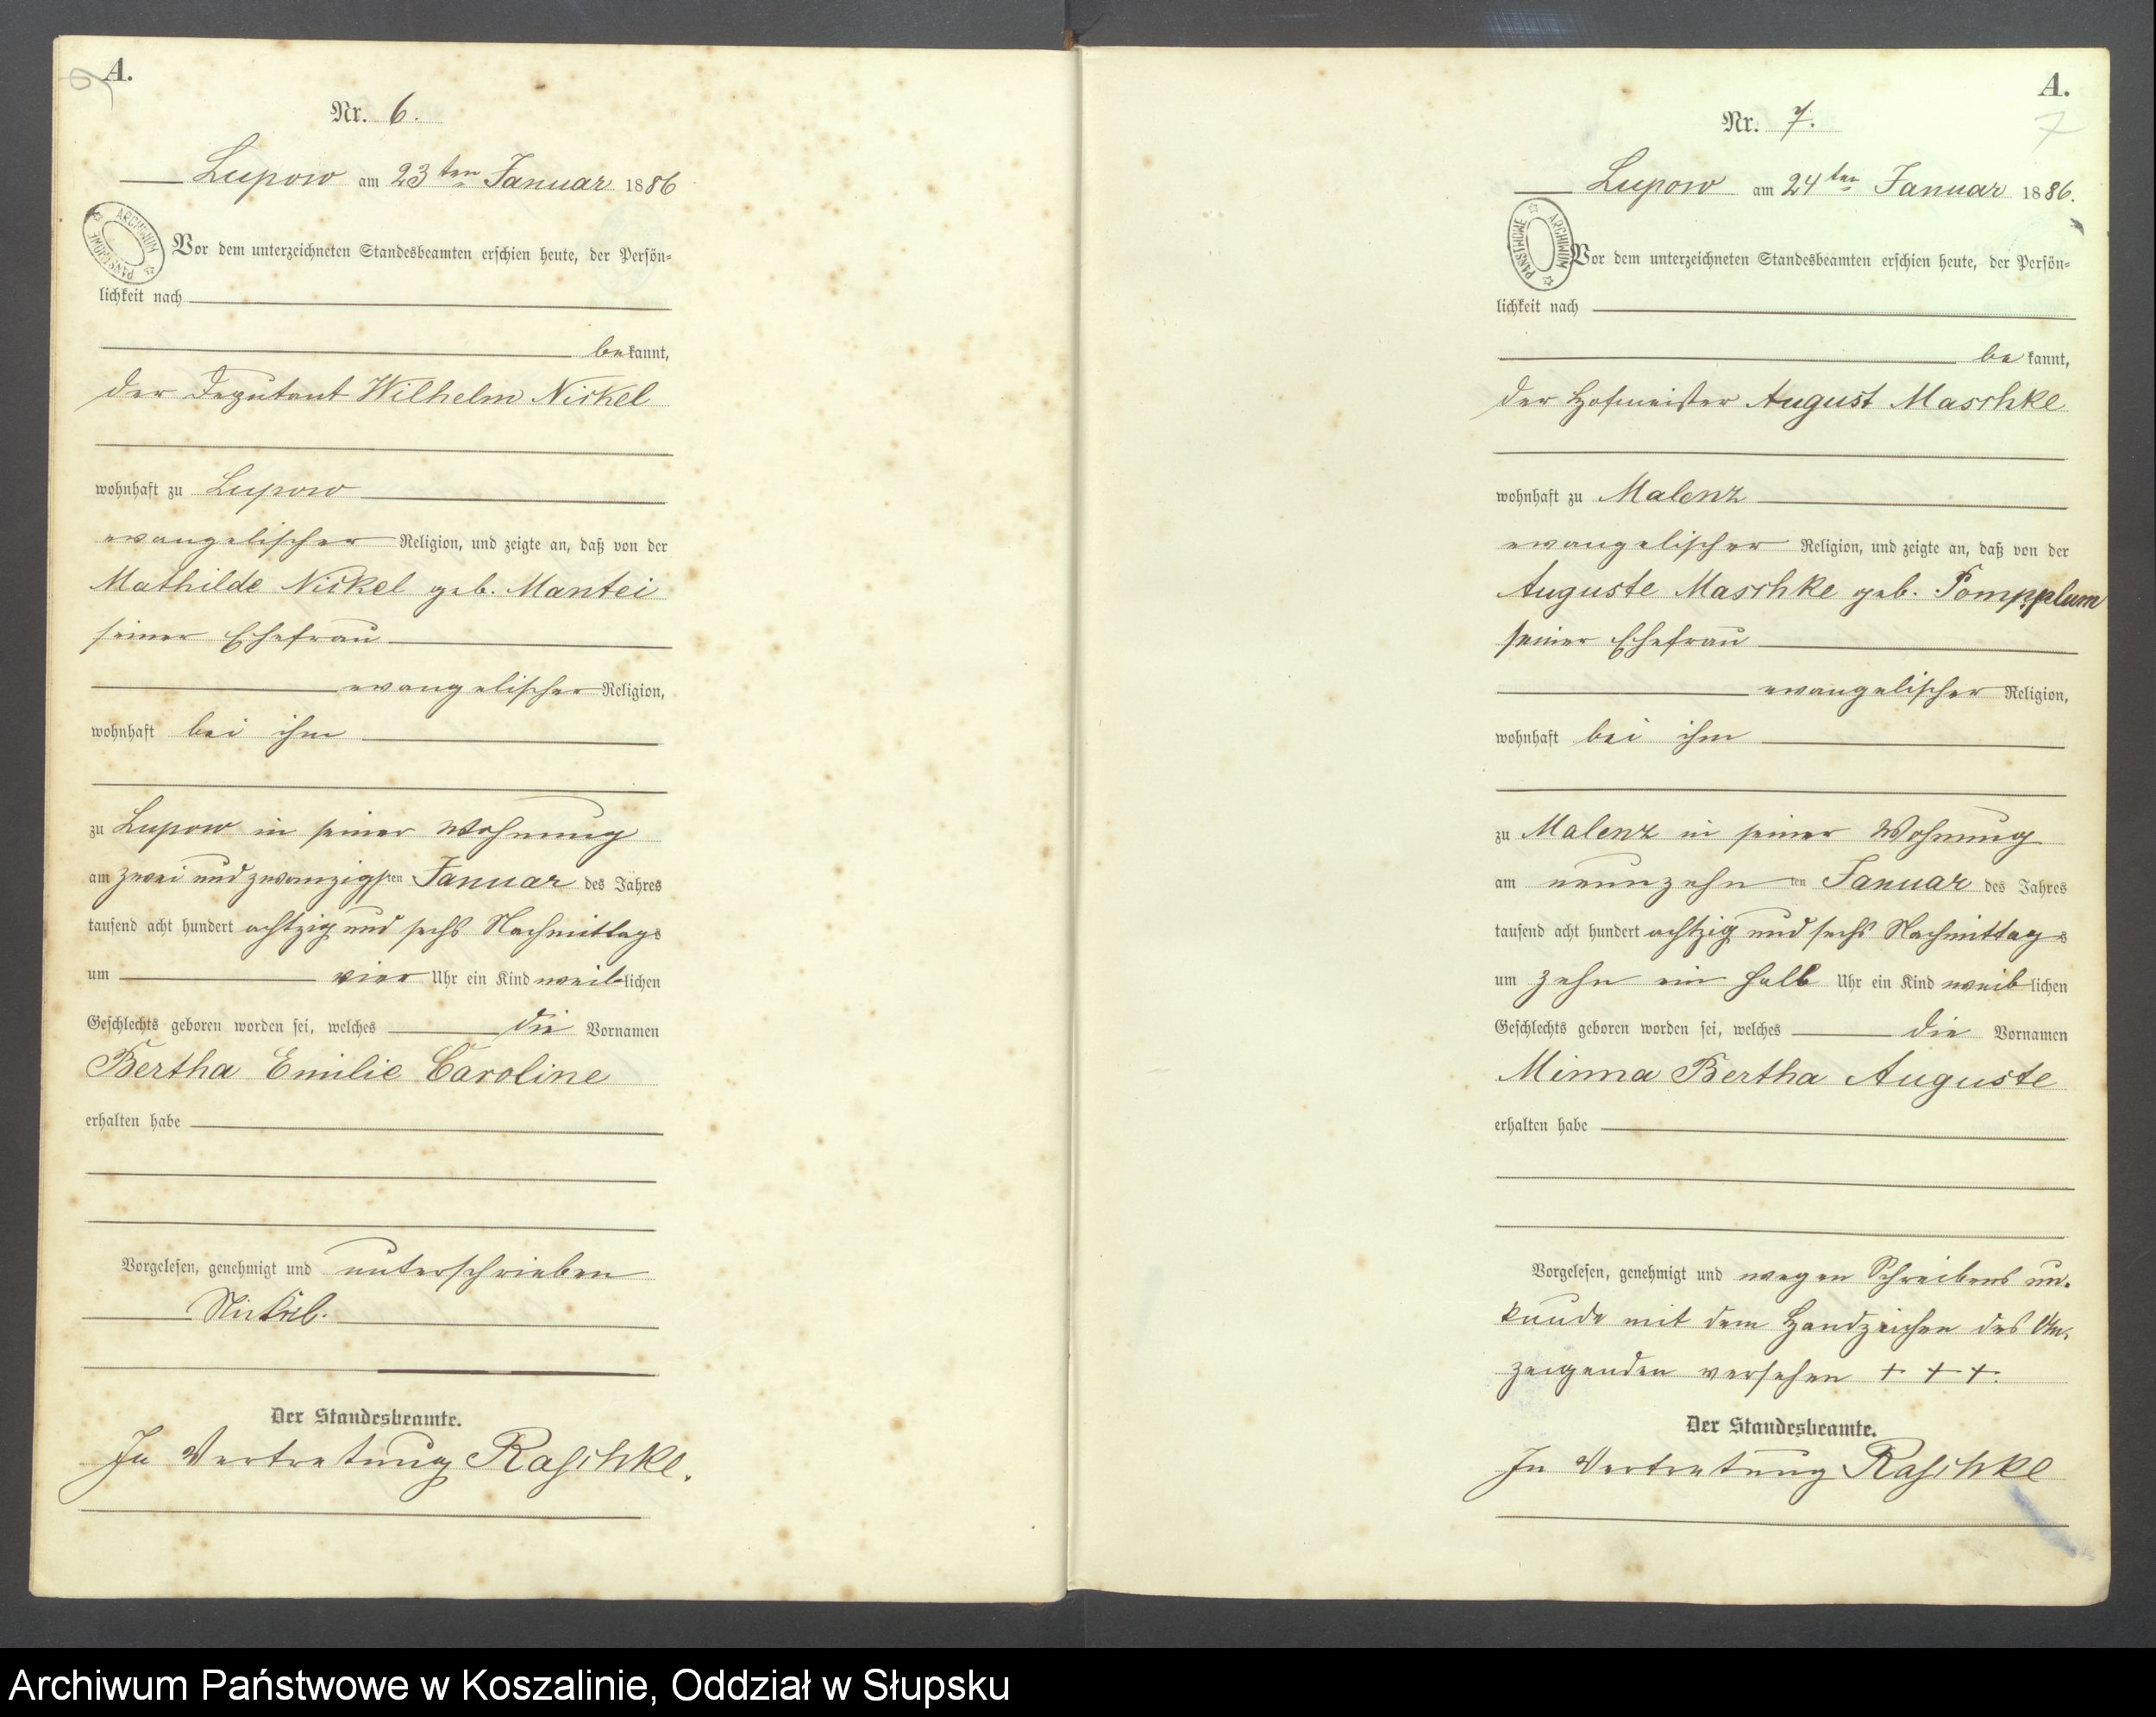 A.
Nr. 6.
Lupow am 23ten Januar 1886
ARCHIWUM PAŃSTWOWE
Vor dem unterzeichneten Standesbeamten erschien heute, der Persön-
lichkeit nach
bekannt,
der Deputant Wilhelm Nickel
wohnhaft zu Lupow
evangelischer Religion, und zeigte an, daß von der
Mathilde Nickel geb. Mantei
seiner Ehefrau
evangelischer Religion,
wohnhaft bei ihm
zu Lupow in seiner Wohnung
am zwei und zwanzigsten Januar des Jahres
tausend acht hundert achtzig und sechs Nachmittags
um vier Uhr ein Kind weiblichen
Geschlechts geboren worden sei, welches die Vornamen
Bertha Emilie Caroline
erhalten habe
Vorgelesen, genehmigt und unterschrieben
Nickel.
Der Standesbeamte.
In Vertretung Raschke.
A.
7
Nr. 7.
Lupow am 24ten Januar 1886.
ARCHIWUM PAŃSTWOWE
Vor dem unterzeichneten Standesbeamten erschien heute, der Persön-
lichkeit nach
bekannt,
der Hofmeister August Maschke
wohnhaft zu Malenz
evangelischer Religion, und zeigte an, daß von der
Auguste Maschke geb. Pompplum
seiner Ehefrau
evangelischer Religion,
wohnhaft bei ihm
zu Malenz in seiner Wohnung
am neunzehnten Januar des Jahres
tausend acht hundert achtzig und sechs Nachmittags
um zehn ein halb Uhr ein Kind weiblichen
Geschlechts geboren worden sei, welches die Vornamen
Minna Bertha Auguste
erhalten habe
Vorgelesen, genehmigt und wegen Schreibens un-
kunde mit dem Handzeichen des An-
zeigenden versehen + + +.
Der Standesbeamte.
In Vertretung Raschke
Archiwum Państwowe w Koszalinie, Oddział w Słupsku